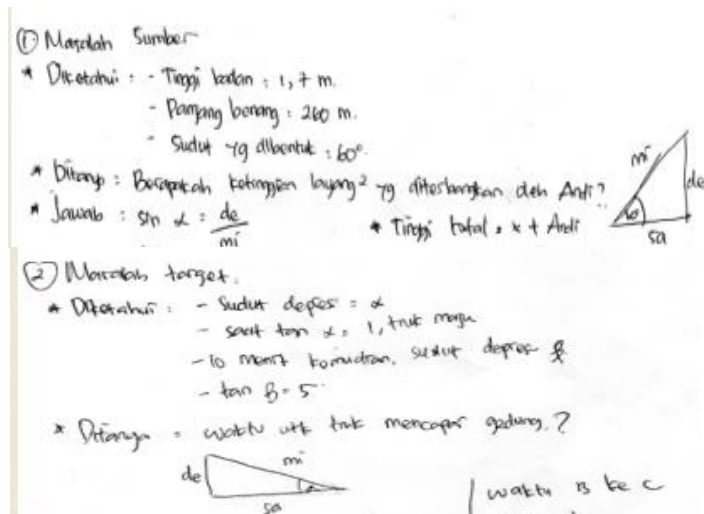 ① Masalah Sumber
* Diketahui : - Tinggi badan : 1,7 m.
- Panjang benang : 260 m.
- Sudut yg dibentuk : 60°.
* Ditanya : Berapakah ketinggian layang² yg diterbangkan oleh Andi?
* Jawab : sin α = de/mi
* Tinggi total = x + Andi
mi
de
60
sa
② Masalah target.
* Diketahui : - Sudut depresi = α
- saat tan α = 1, truk maju
- 10 menit kemudian, sudut depresi β
- tan β = 5
* Ditanya = waktu utk truk mencapai gedung.?
de
mi
sa
waktu B ke C